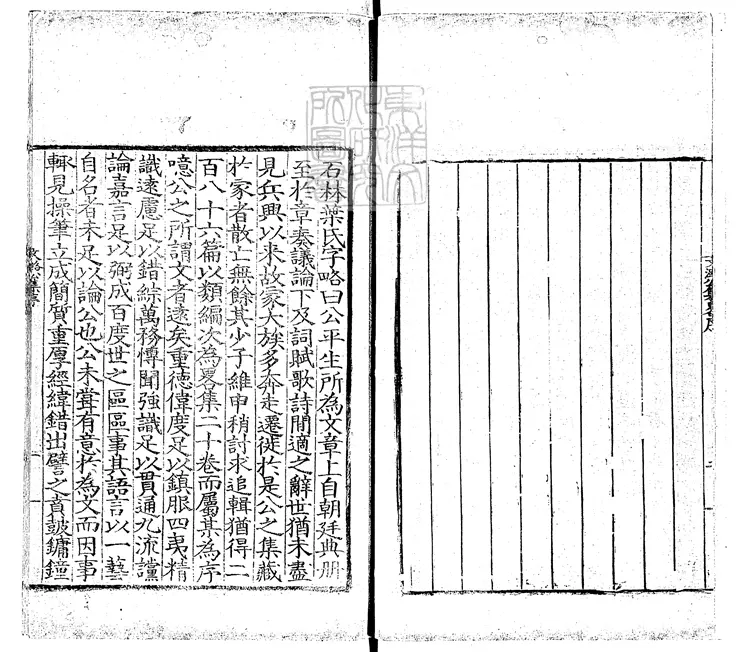 石林葉氏字略曰公平生所為文章上自朝廷典册
至於章奏議論下及詞賦歌詩閒適之辭世猶未盡
見兵興以来故家大族多奔走遷徙於是公之集藏
於家者散亡無餘其少子維申稍討求追輯猶得二
百八十六篇以類編次為畧集二十卷而屬某為序
噫公之所謂文者遠矣重德偉度足以鎮服四夷精
識遠慮足以錯綜萬務愽聞強識足以貫通九流讜
論嘉言足以弼成百度世之區區事其語言以一藝
自名者未足以論公也公未甞有意於為文而因事
輙見操筆立成簡質重厚經緯錯出譬之賁鼓鏞鐘